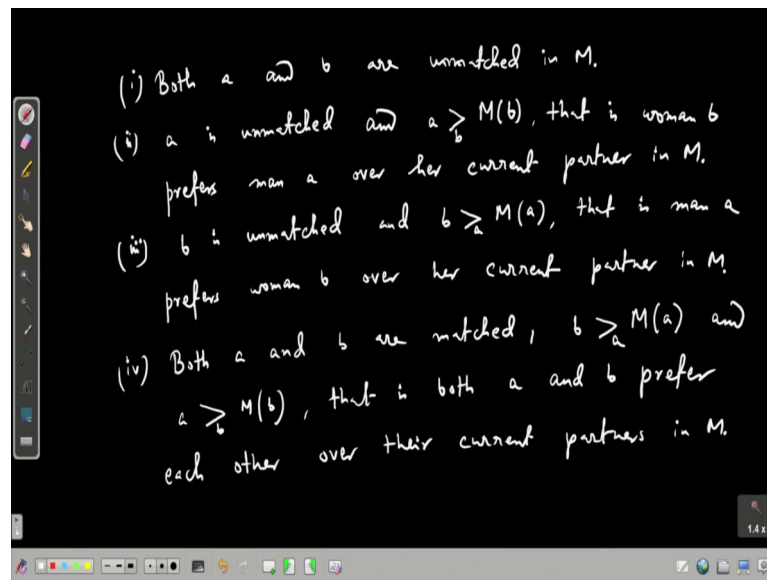 (i) Both a and b are unmatched in M.
(ii) a is unmatched and a >_b M(b), that is woman b
prefers man a over her current partner in M.
(iii) b is unmatched and b >_a M(a), that is man a
prefers woman b over her current partner in M.
(iv) Both a and b are matched, b >_a M(a) and
a >_b M(b), that is both a and b prefer
each other over their current partners in M.
1.4 x